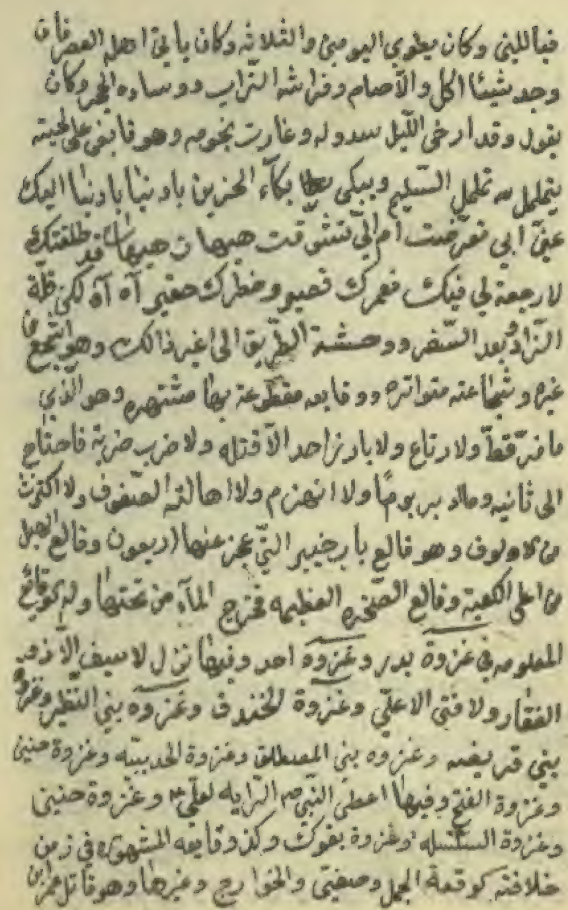 فبالليل وكان يطوي اليومين والثلاثة وكان ياتي اهله العصر فان
وجد شيئا اكل والا صام وفراشه التراب ووساده الحجر وكان
يقول وقد ارخى الليل سدوله وغارت نجومه وهو قابض على لحيته
يتململ تململ السليم ويبكى بكاء الحزين يا دنيا يا دنيا اليك
عني ابي تعرضت ام الي تشوقت هيهات هيهات قد طلقتك
لا رجعة لي فيك فعمرك قصير وخطرك حقير آه آه لكى قلة
الزاد وبعد السفر ووحشة الطريق الى غير ذالك وهو اشجع من
غيره وشجاعته متواتره ووقايعه مقطوعة بها مشتهره وهو الذي
ما فر قط ولا ارتاع ولا بارز احد الا قتله ولا ضرب ضربة فاحتاج
الى ثانيه وما دبر يوما ولا انهزم ولا اهالته الصفوف ولا اكترث
من الالوف وهو قالع باب خيبر التي عجز عنها اربعون وقالع الهبل
من اعلى الكعبة وقالع الصخره العظيمه فخرج المآء من تحتها وله الوقايع
المعلومه في غزوة بدر وغزوة احد وفيها نزل لا سيف الا ذو
الفقار ولا فتى الا علي وغزوة الخندق وغزوه بني النظير وغزوة
بني قريضه وغزوه بني المصطلق وغزوة الحديبيه وغزوة حنين
وغزوة الفتح وفيها اعطى النبي صم الرايه لعلي ع وغزوة حنين
وغزوة السلسله وغزوة بقوك وكذ وقايعه المشهوره في زمن
خلافته كوقعة الجمل وصفين والخوارج وغيرها وهو قاتل عمر ابن